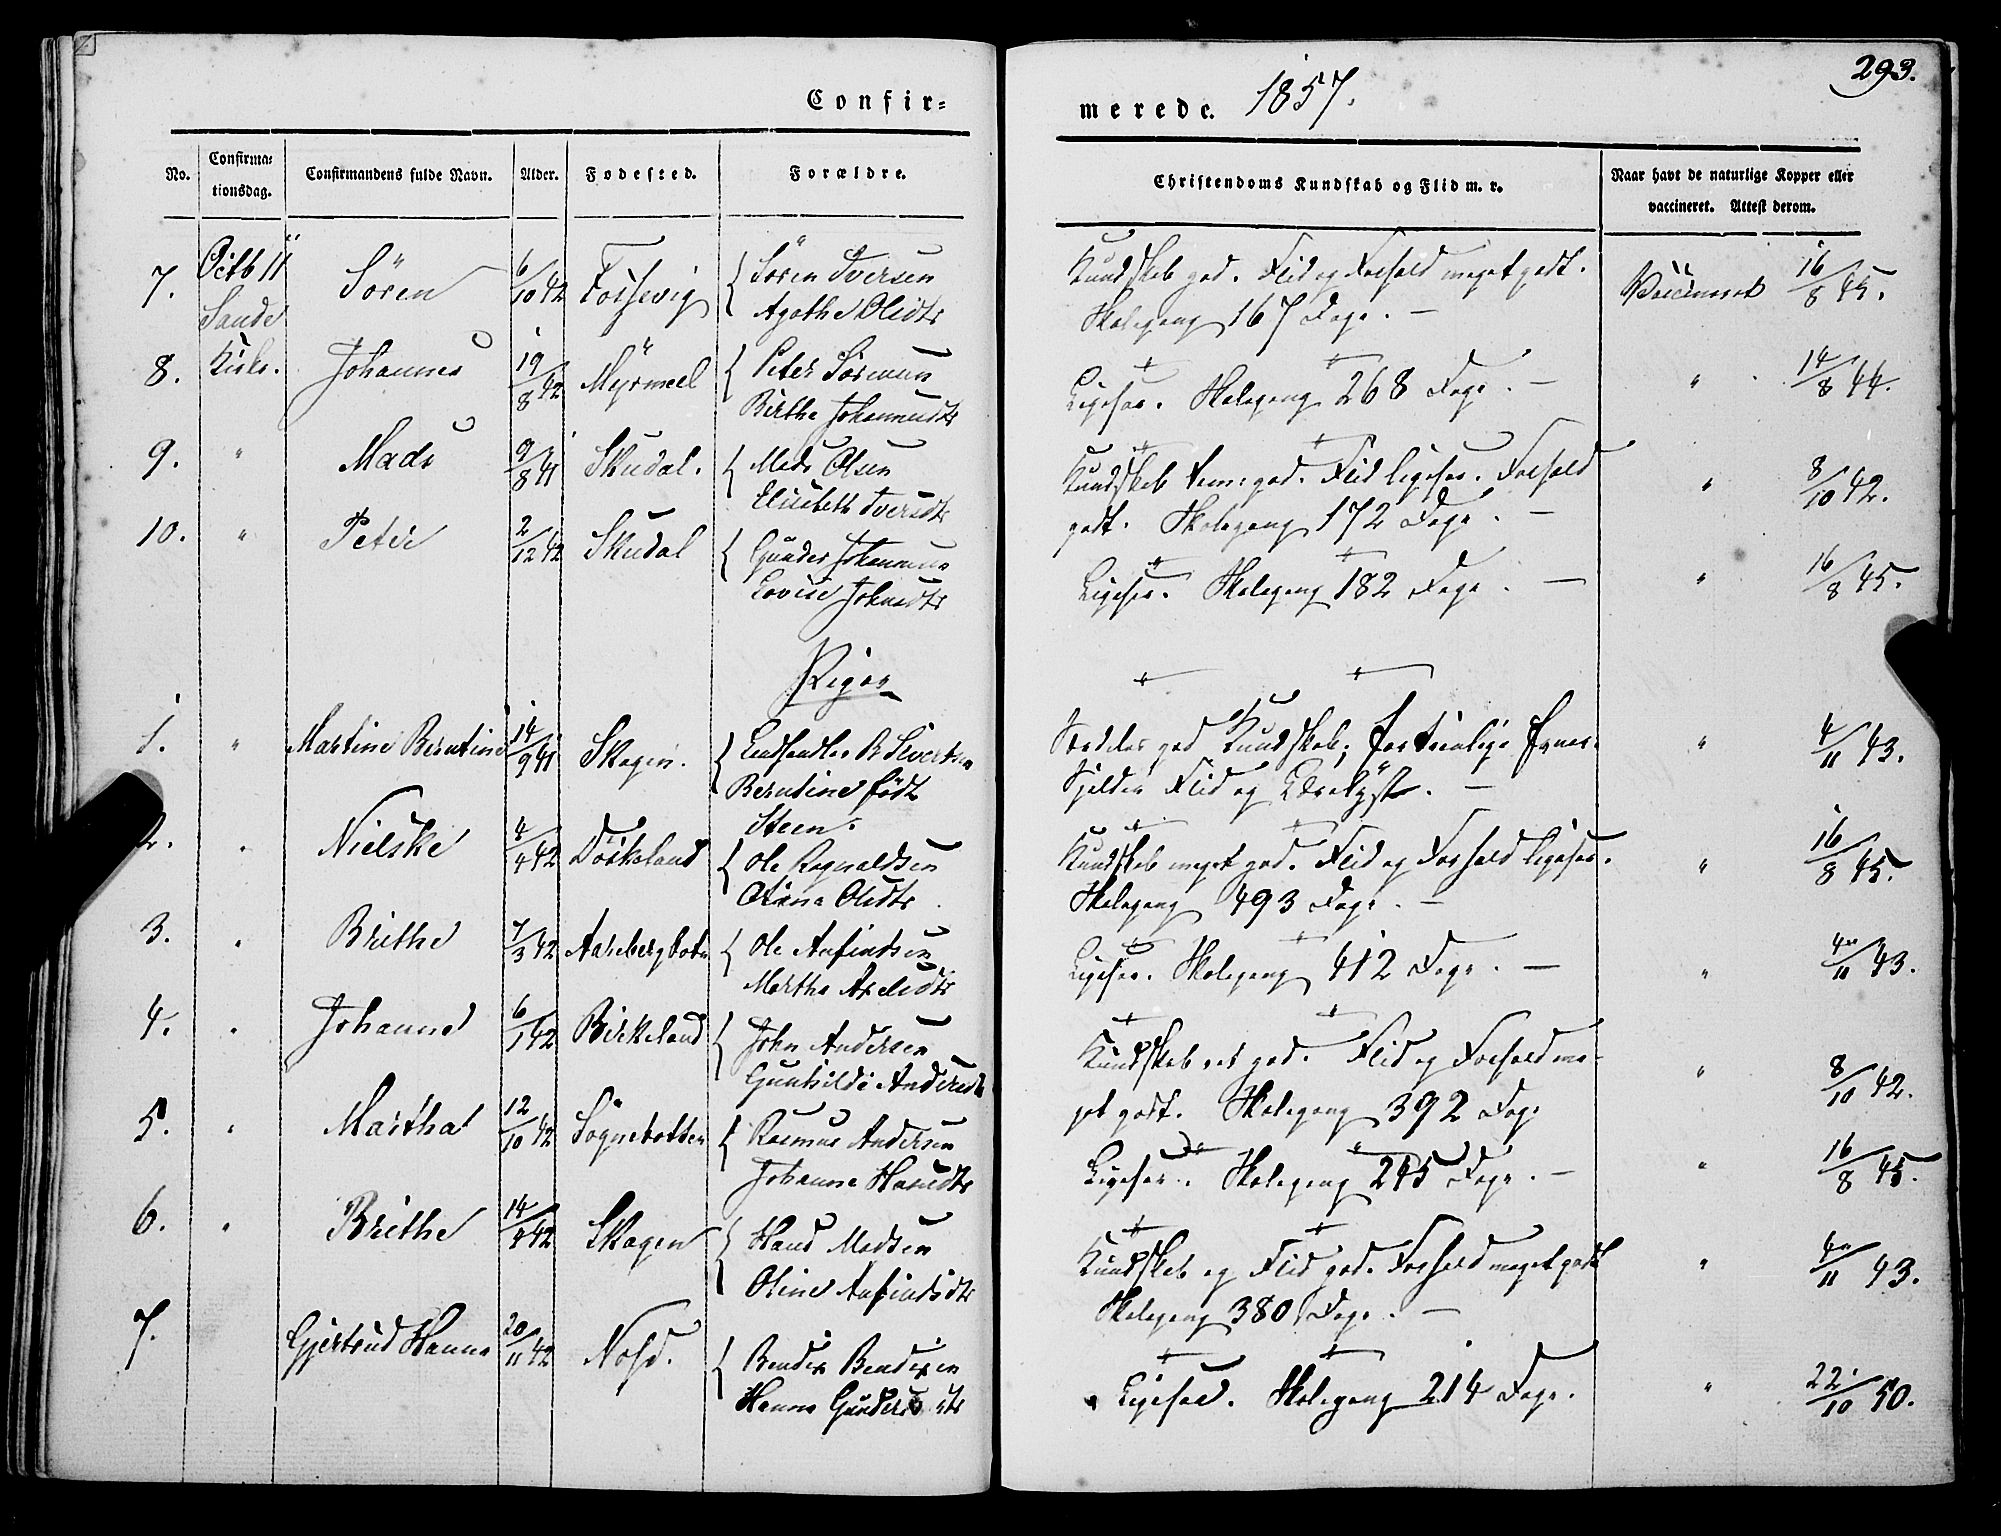 Confir=
merede. 1857.
293.
No.
Confirma=
tionsdag.
Confirmandens fulde Navn.
Alder.
Fodested.
Forældre.
Christendoms Kundskab og Flid m. v.
Naar havt de naturlige Kopper eller
vaccineret. Attest derom.
7. Octb 11 Sören 6/10 42 Forsevig { Sören Iversen Kundskab god. Flid og Forhold meget godt. Vaccineret 16/8 45.
Sande Agathe Olsdtr Skolegang 167 Dage. —
8. Kirke. Johannes 19/8 42 Myrmeel { Peter Sörensen Ligesaa. Skolegang 268 Dage. — " 14/8 44.
Birthe Johannesdtr
9. " Mads 9/8 41 Skudal. { Mads Olsen Kundskab temme god. Flid ligesaa. Forhold " 8/10 42.
Elisabeth Iversdtr godt. Skolegang 172 Dage. —
10. " Peter 2/12 42 Skudal { Gunder Johannesen Ligesaa. Skolegang 182 Dage. — " 16/8 45.
Lovise Johnsdtr
Piger
1. " Martine Berntine 14/9 41 Skagen. { Landhandler R Sivertsen Særdeles god Kundskab; fortrinlige Evner. " 4/11 43.
Berntine födt Sjelden Flid og Lærelyst. —
Steen.
2. " Nielske 4/4 42 Döskeland { Ole Rognaldsen Kundskab meget god. Flid og Forhold ligesaa. " 16/8 45.
Olina Olsdtr Skolegang 493 Dage. —
3. " Brithe 7/3 42 Aarebergbotn { Ole Anfindsen Ligesaa. Skolegang 412 Dage. — " 4/11 43.
Marthe Axelsdtr
4. " Johanne 6/1 42 Birkeland { John Andersen Kundskab ret god. Flid og Forhold me= " 8/10 42.
Gunhilde Andersdtr get godt. Skolegang 392 Dage
5. " Martha 12/10 42 Sögnebotten { Rasmus Andersen Ligesaa. Skolegang 245 Dage. — " 16/8 45.
Johanne Hansdtr
6. " Brithe 14/4 42 Skagen { Hans Madsen Kundskab og Flid god. Forhold meget godt " 4/11 43.
Oline Anfindsdtr Skolegang 380 Dage. —
7. Gjertrud Hanna 20/11 42 Nord. { Bendix Bendixen Ligesaa. Skolegang 214 Dage. " 22/10 50.
Hanna Gundersdtr